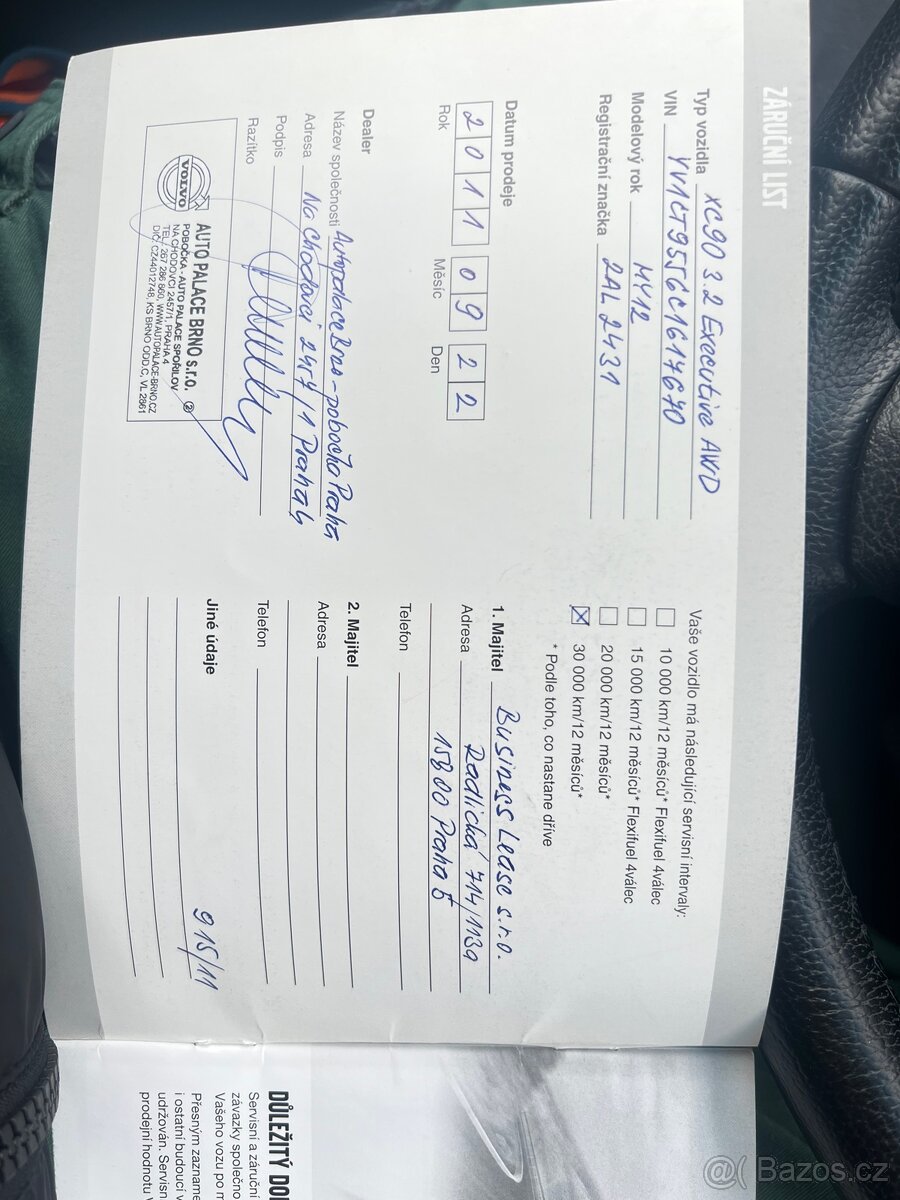 ZÁRUČNÍ LIST
Typ vozidla XC90 3.2 Executive AWD
VIN YV1CT955GC1617670
Modelový rok MY12
Registrační značka 2AL 2431
Datum prodeje
2011 09 22
Rok Měsíc Den
Dealer
Název společnosti Autopalace Brno - pobočka Praha
Adresa Na Chodovci 2457/1 Praha 4
Podpis
Razítko
VOLVO
AUTO PALACE BRNO s.r.o. 2
POBOČKA - AUTO PALACE SPOŘILOV
NA CHODOVCI 2457/1, PRAHA 4
TEL.: 267 286 860, WWW.AUTOPALACE-BRNO.CZ
DIČ: CZ44012748, KS BRNO ODD.C, VL 2861
Vaše vozidlo má následující servisní intervaly:
10 000 km/12 měsíců* Flexifuel 4válec
15 000 km/12 měsíců* Flexifuel 4válec
20 000 km/12 měsíců*
X 30 000 km/12 měsíců*
* Podle toho, co nastane dříve
1. Majitel Business Lease s.r.o.
Adresa Radlická 714/113a
15800 Praha 5
Telefon
2. Majitel
Adresa
Telefon
Jiné údaje
915/11
DŮLEŽITÝ
Servisní a záruční
závazky společno
Vašeho vozu po m
Přesným zazname
i ostatní budoucí v
udržován. Servisn
prodejní hodnotu
@( Bazos.cz